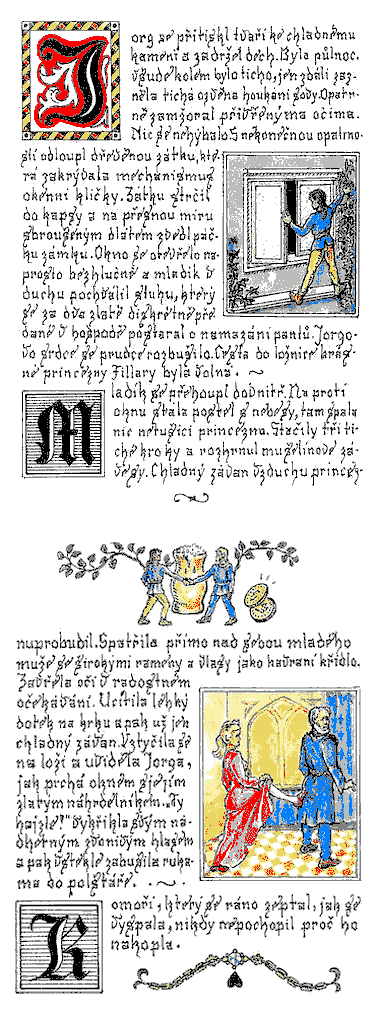 Iorg se přitiskl tváří ke chladnému
kameni a zadržel dech. Byla půlnoc.
Všude kolem bylo ticho, jen zdáli zaz-
něla tichá ozvěna houkání sovy. Opatr-
ně zamžoural přivřenýma očima.
Nic se nehýbalo. S nekonečnou opatrno-
stí odloupl dřevěnou zátku, kte-
rá zakrývala mechanismus
okenní kličky. Zátku strčil
do kapsy a na přesnou míru
zbroušeným dlátem zvedl páč-
ku zámku. Okno se otevřelo na-
prosto bezhlučně a mladík v
duchu pochválil sluhu, který
se za dva zlaté diskrétně pře-
dané v hospodě postaral o namazání pantů. Jorgo-
vo srdce se prudce rozbušilo. Cesta do ložnice krás-
né princezny Fillary byla volná.
Mladík se přehoupl dovnitř. Na proti
oknu stála postel s nebesy, tam spala
nic netušící princezna. Stačily tři ti-
ché kroky a rozhrnul mušelínové zá-
věsy. Chladný závan vzduchu princez-
nu probudil. Spatřila přímo nad sebou mladého
muže se širokými rameny a vlasy jako havraní křídlo.
Zavřela oči v radostném
očekávání. Ucítila lehký
dotek na krku a pak už jen
chladný závan. Vztyčila se
na loži a uviděla Jorga,
jak prchá oknem s jejím
zlatým náhrdelníkem. "Ty
hajzle!" vykřikla svým ná-
dherným zvonivým hlasem
a pak vztekle zabušila ruka-
ma do polštáře.
Komoří, který se ráno zeptal, jak se
vyspala, nikdy nepochopil proč ho
nakopla.